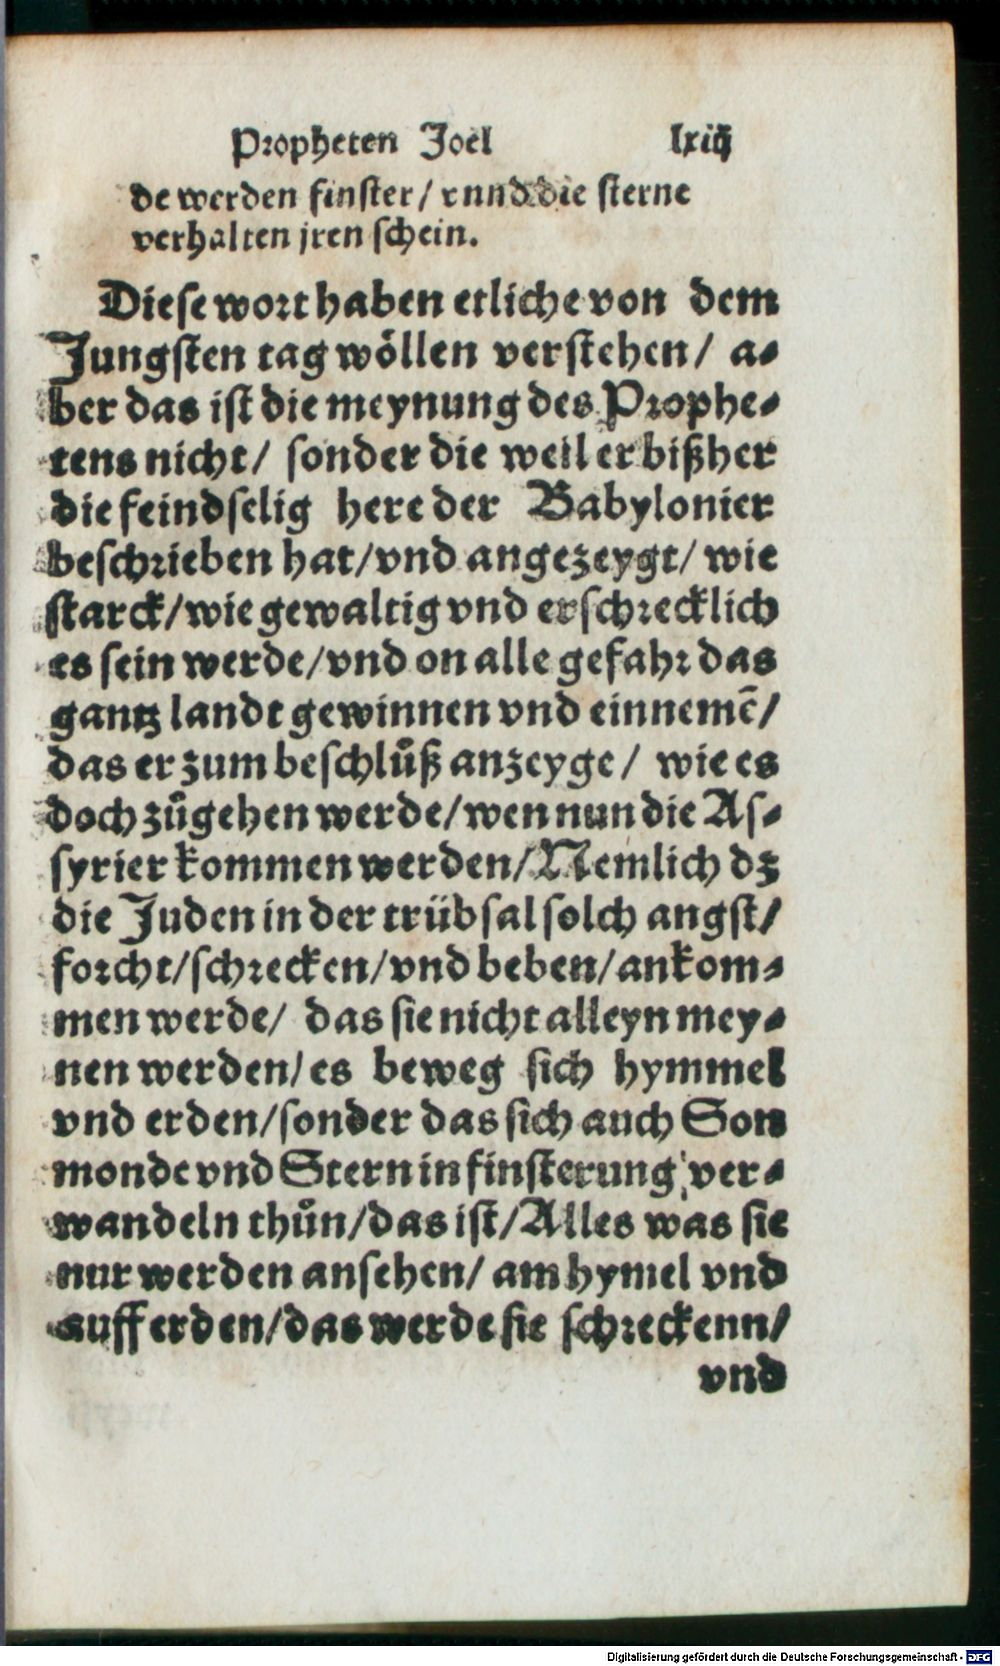 Propheten Joel lxiij
de werden finster/ vnnd die sterne
verhalten jren schein.
Diese wort haben etliche von dem
Jungsten tag wöllen verstehen/ a⸗
ber das ist die meynung des Prophe⸗
tens nicht/ sonder die weil er bißher
die feindselig here der Babylonier
beschrieben hat/vnd angezeygt/ wie
starck/wie gewaltig vnd erschrecklich
es sein werde/vnd on alle gefahr das
gantz landt gewinnen vnd einnemē/
das er zum beschlůß anzeyge/ wie es
doch zůgehen werde/wen nun die As⸗
syrier kommen werden/Nemlich dz
die Juden in der trübsal solch angst/
forcht/schrecken/vnd beben/ankom⸗
men werde/ das sie nicht alleyn mey⸗
nen werden/es beweg sich hymmel
vnd erden/sonder das sich auch Son
monde vnd Stern in finsterung ver⸗
wandeln thůn/das ist/Alles was sie
nur werden ansehen/ am hymel vnd
auff erden/das werde sie schreckenn/
vnd
Digitalisierung gefördert durch die Deutsche Forschungsgemeinschaft - DFG